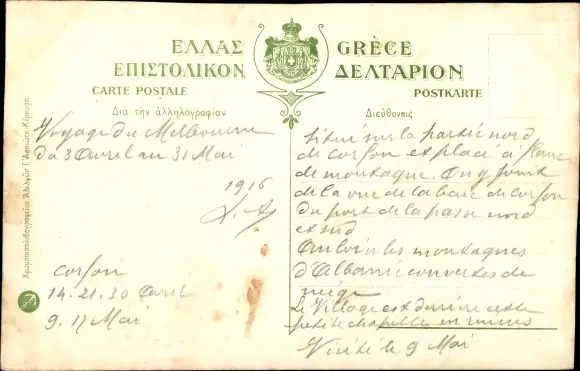 ΕΛΛΑΣ GRÈCE
ΕΠΙΣΤΟΛΙΚΟΝ ΔΕΛΤΑΡΙΟΝ
CARTE POSTALE POSTKARTE
Διὰ τὴν ἀλληλογραφίαν
Διεύθυνσις
Voyage du Melbourne
du 3 Avril au 31 Mai
1916
Corfou
14. 21. 30 Avril
9. 17 Mai
Situé sur la partie nord
de corfou et placé à flanc
de montagne. On y jouit
de la vue de la baie de corfou
du port de la passe nord
et sud
Au loin les montagnes
d'Albanie couvertes de
neige
Le Village est derrière cette
petite chapelle en ruines
Visité le 9 Mai
Χρωμοτυπολιθογραφεῖον Ἀδελφῶν Γ. Ἀσπιώτη-Κέρκυρα.